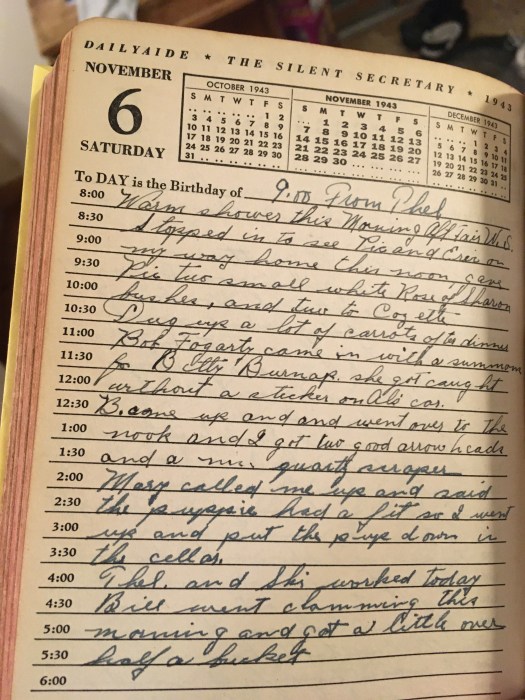 DAILYAIDE ★ THE SILENT SECRETARY ★ 1943
NOVEMBER
6
SATURDAY
OCTOBER 1943
S M T W T F S
.. .. .. .. .. 1 2
3 4 5 6 7 8 9
10 11 12 13 14 15 16
17 18 19 20 21 22 23
24 25 26 27 28 29 30
31 .. .. .. .. .. ..
NOVEMBER 1943
S M T W T F S
.. 1 2 3 4 5 6
7 8 9 10 11 12 13
14 15 16 17 18 19 20
21 22 23 24 25 26 27
28 29 30 .. .. .. ..
DECEMBER 1943
S M T W T F S
.. .. .. 1 2 3 4
5 6 7 8 9 10 11
12 13 14 15 16 17 18
19 20 21 22 23 24 25
26 27 28 29 30 31 ..
To DAY is the Birthday of 9.00 From Thel
8:00 Warm shower this Morning Aft fair W.S.
8:30 Stopped in to see Pic and on
9:00 my way home this noon, gave
9:30 Pic two small white Rose of Sharon
10:00 bushes, and two to
10:30 Dug up a lot of carrots after dinner
11:00 Bob Fogarty came in with a summons
11:30 for Betty Burnap. she got caught
12:00 without a sticker on Als car.
12:30 B. came up and and went over to the
1:00 nook and I got two good arrow heads
1:30 and a quartz scraper
2:00 Mary called me up and said
2:30 the puppie had a fit so I went
3:00 up and put the pupe down in
3:30 the cellar.
4:00 Thel. and Ski worked today
4:30 Bill went clamming this
5:00 morning and got a little over
5:30 half a bucket
6:00